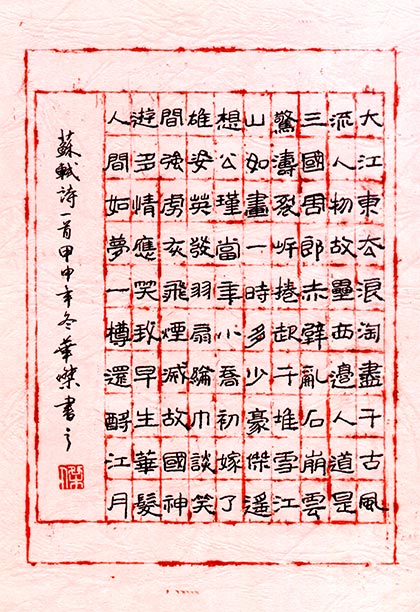 大江東去浪淘盡千古風
流人物故壘西邊人道是
三國周郎赤壁亂石崩雲
驚濤裂岸捲起千堆雪江
山如畫一時多少豪傑遙
想公瑾當年小喬初嫁了
雄姿英發羽扇綸巾談笑
間強虜灰飛煙滅故國神
遊多情應笑我早生華髮
人間如夢一樽還酹江月
蘇軾詩一首甲申年冬華書之